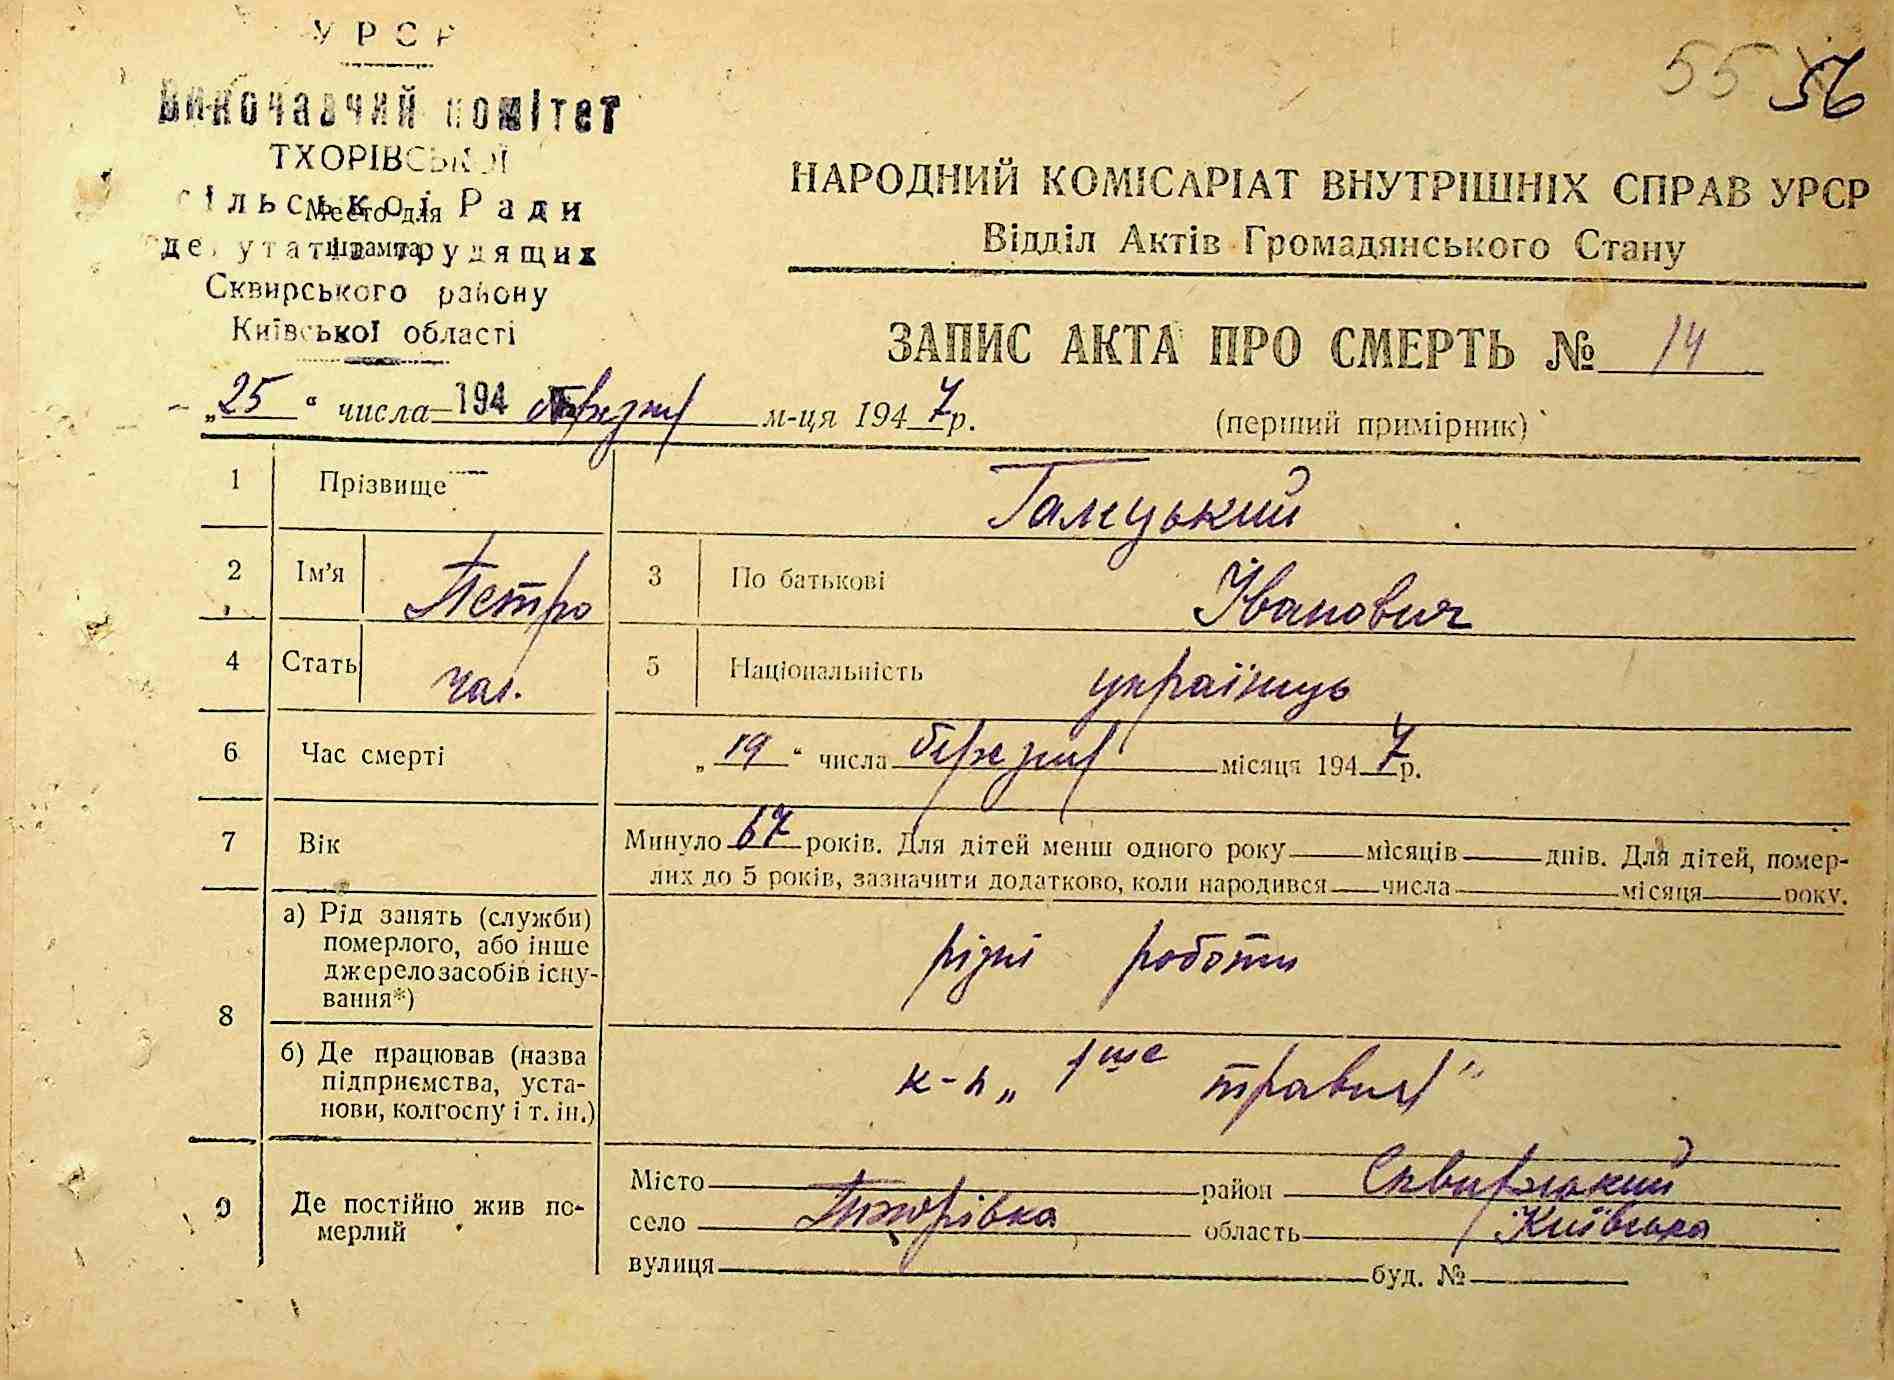 УРСР
Виконавчий комітет
ТХОРІВСЬКОЇ
сільської Ради
Место для
депутатів трудящих
штампа
Сквирського району
Київської області
55 56
НАРОДНИЙ КОМІСАРІАТ ВНУТРІШНІХ СПРАВ УРСР
Відділ Актів Громадянського Стану
ЗАПИС АКТА ПРО СМЕРТЬ № 14
„25“ числа 194 березня м-ця 1947 р.
(перший примірник)
1 Прізвище Галецький
2 Ім'я Петро 3 По батькові Іванович
4 Стать чол. 5 Національність українець
6 Час смерті „19“ числа березня місяця 1947 р.
7 Вік Минуло 67 років. Для дітей менш одного року місяців днів. Для дітей, помер-
лих до 5 років, зазначити додатково, коли народився числа місяця року.
8 а) Рід занять (служби)
померлого, або інше
джерело засобів існу-
вання*)
різні роботи
б) Де працював (назва
підприємства, уста-
нови, колгоспу і т. ін.)
к-п „1ше травня"
9 Де постійно жив по-
мерлий
Місто район Сквирський
село Тхорівка область Київська
вулиця буд. №